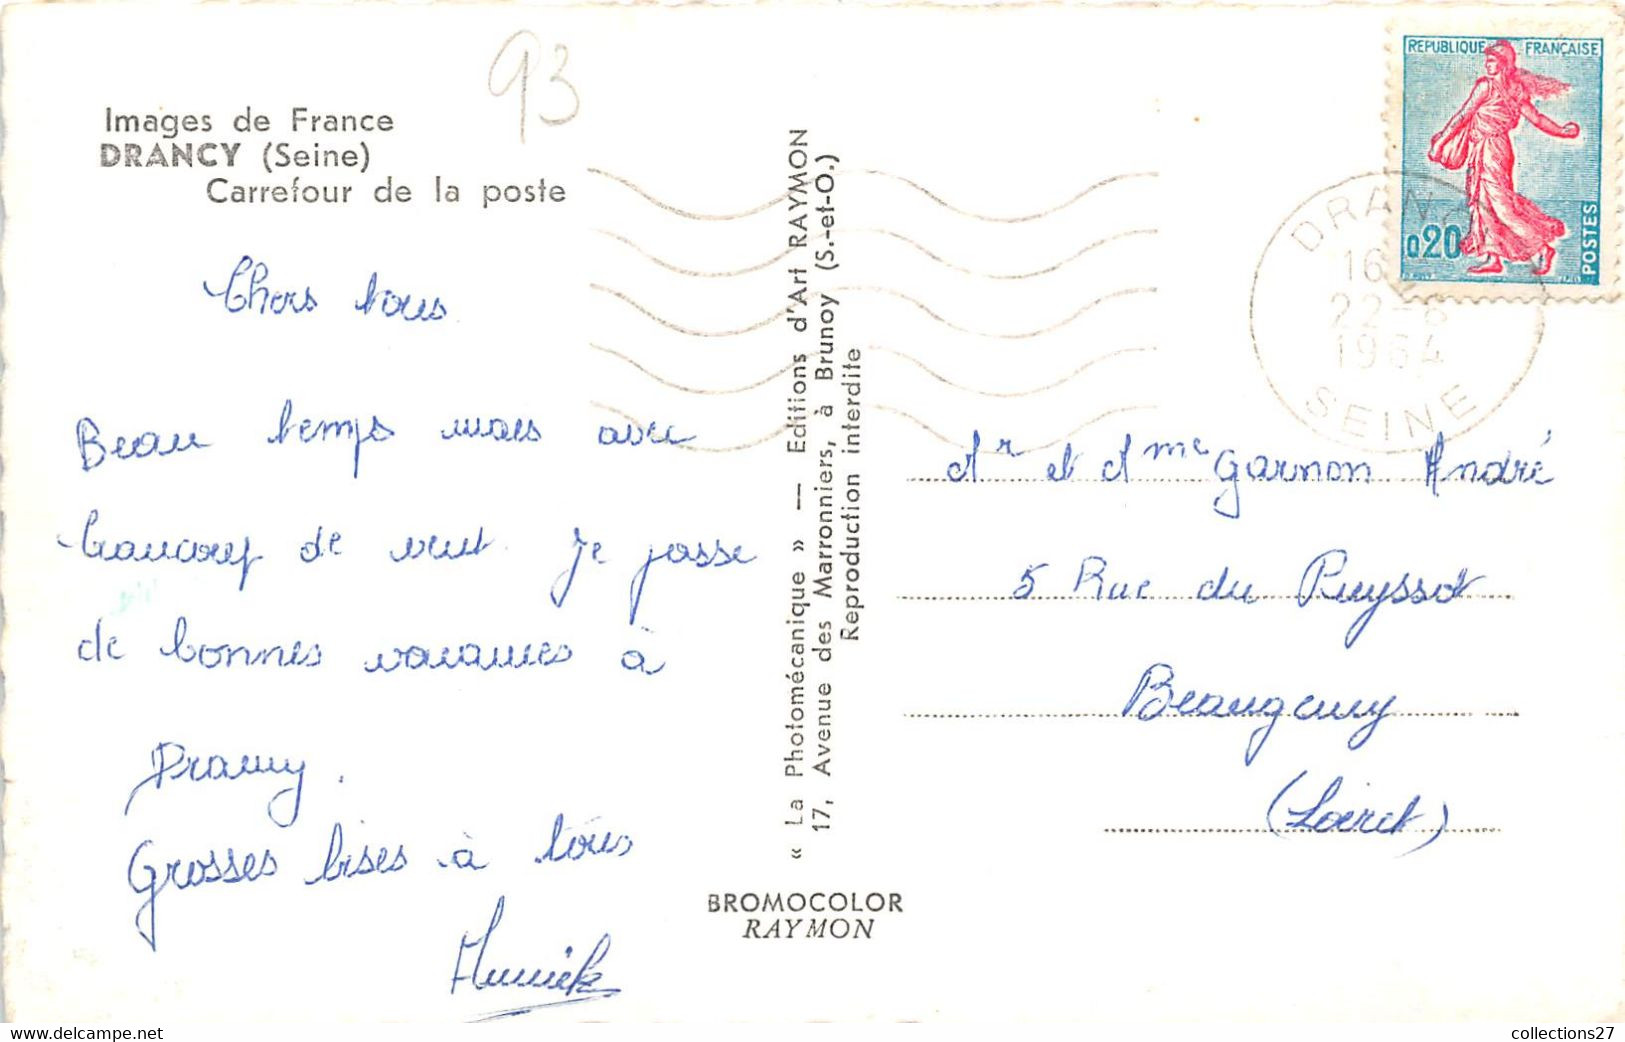 93
Images de France
DRANCY (Seine)
Carrefour de la poste
Chers tous
Beau temps mais avec
beaucoup de vent. Je passe
de bonnes vacances à
Drancy.
Grosses bises à tous
Annick
« La Photomécanique » — Editions d'Art RAYMON
17, Avenue des Marronniers, à Brunoy (S.-et-O.)
Reproduction interdite
BROMOCOLOR
RAYMON
REPUBLIQUE FRANÇAISE
0,20
POSTES
DRANCY
16
22-8
1964
SEINE
Mr et Mme Garnon André
5 Rue du Puyssot
Beaugency
(Loiret)
www.delcampe.net
collections27